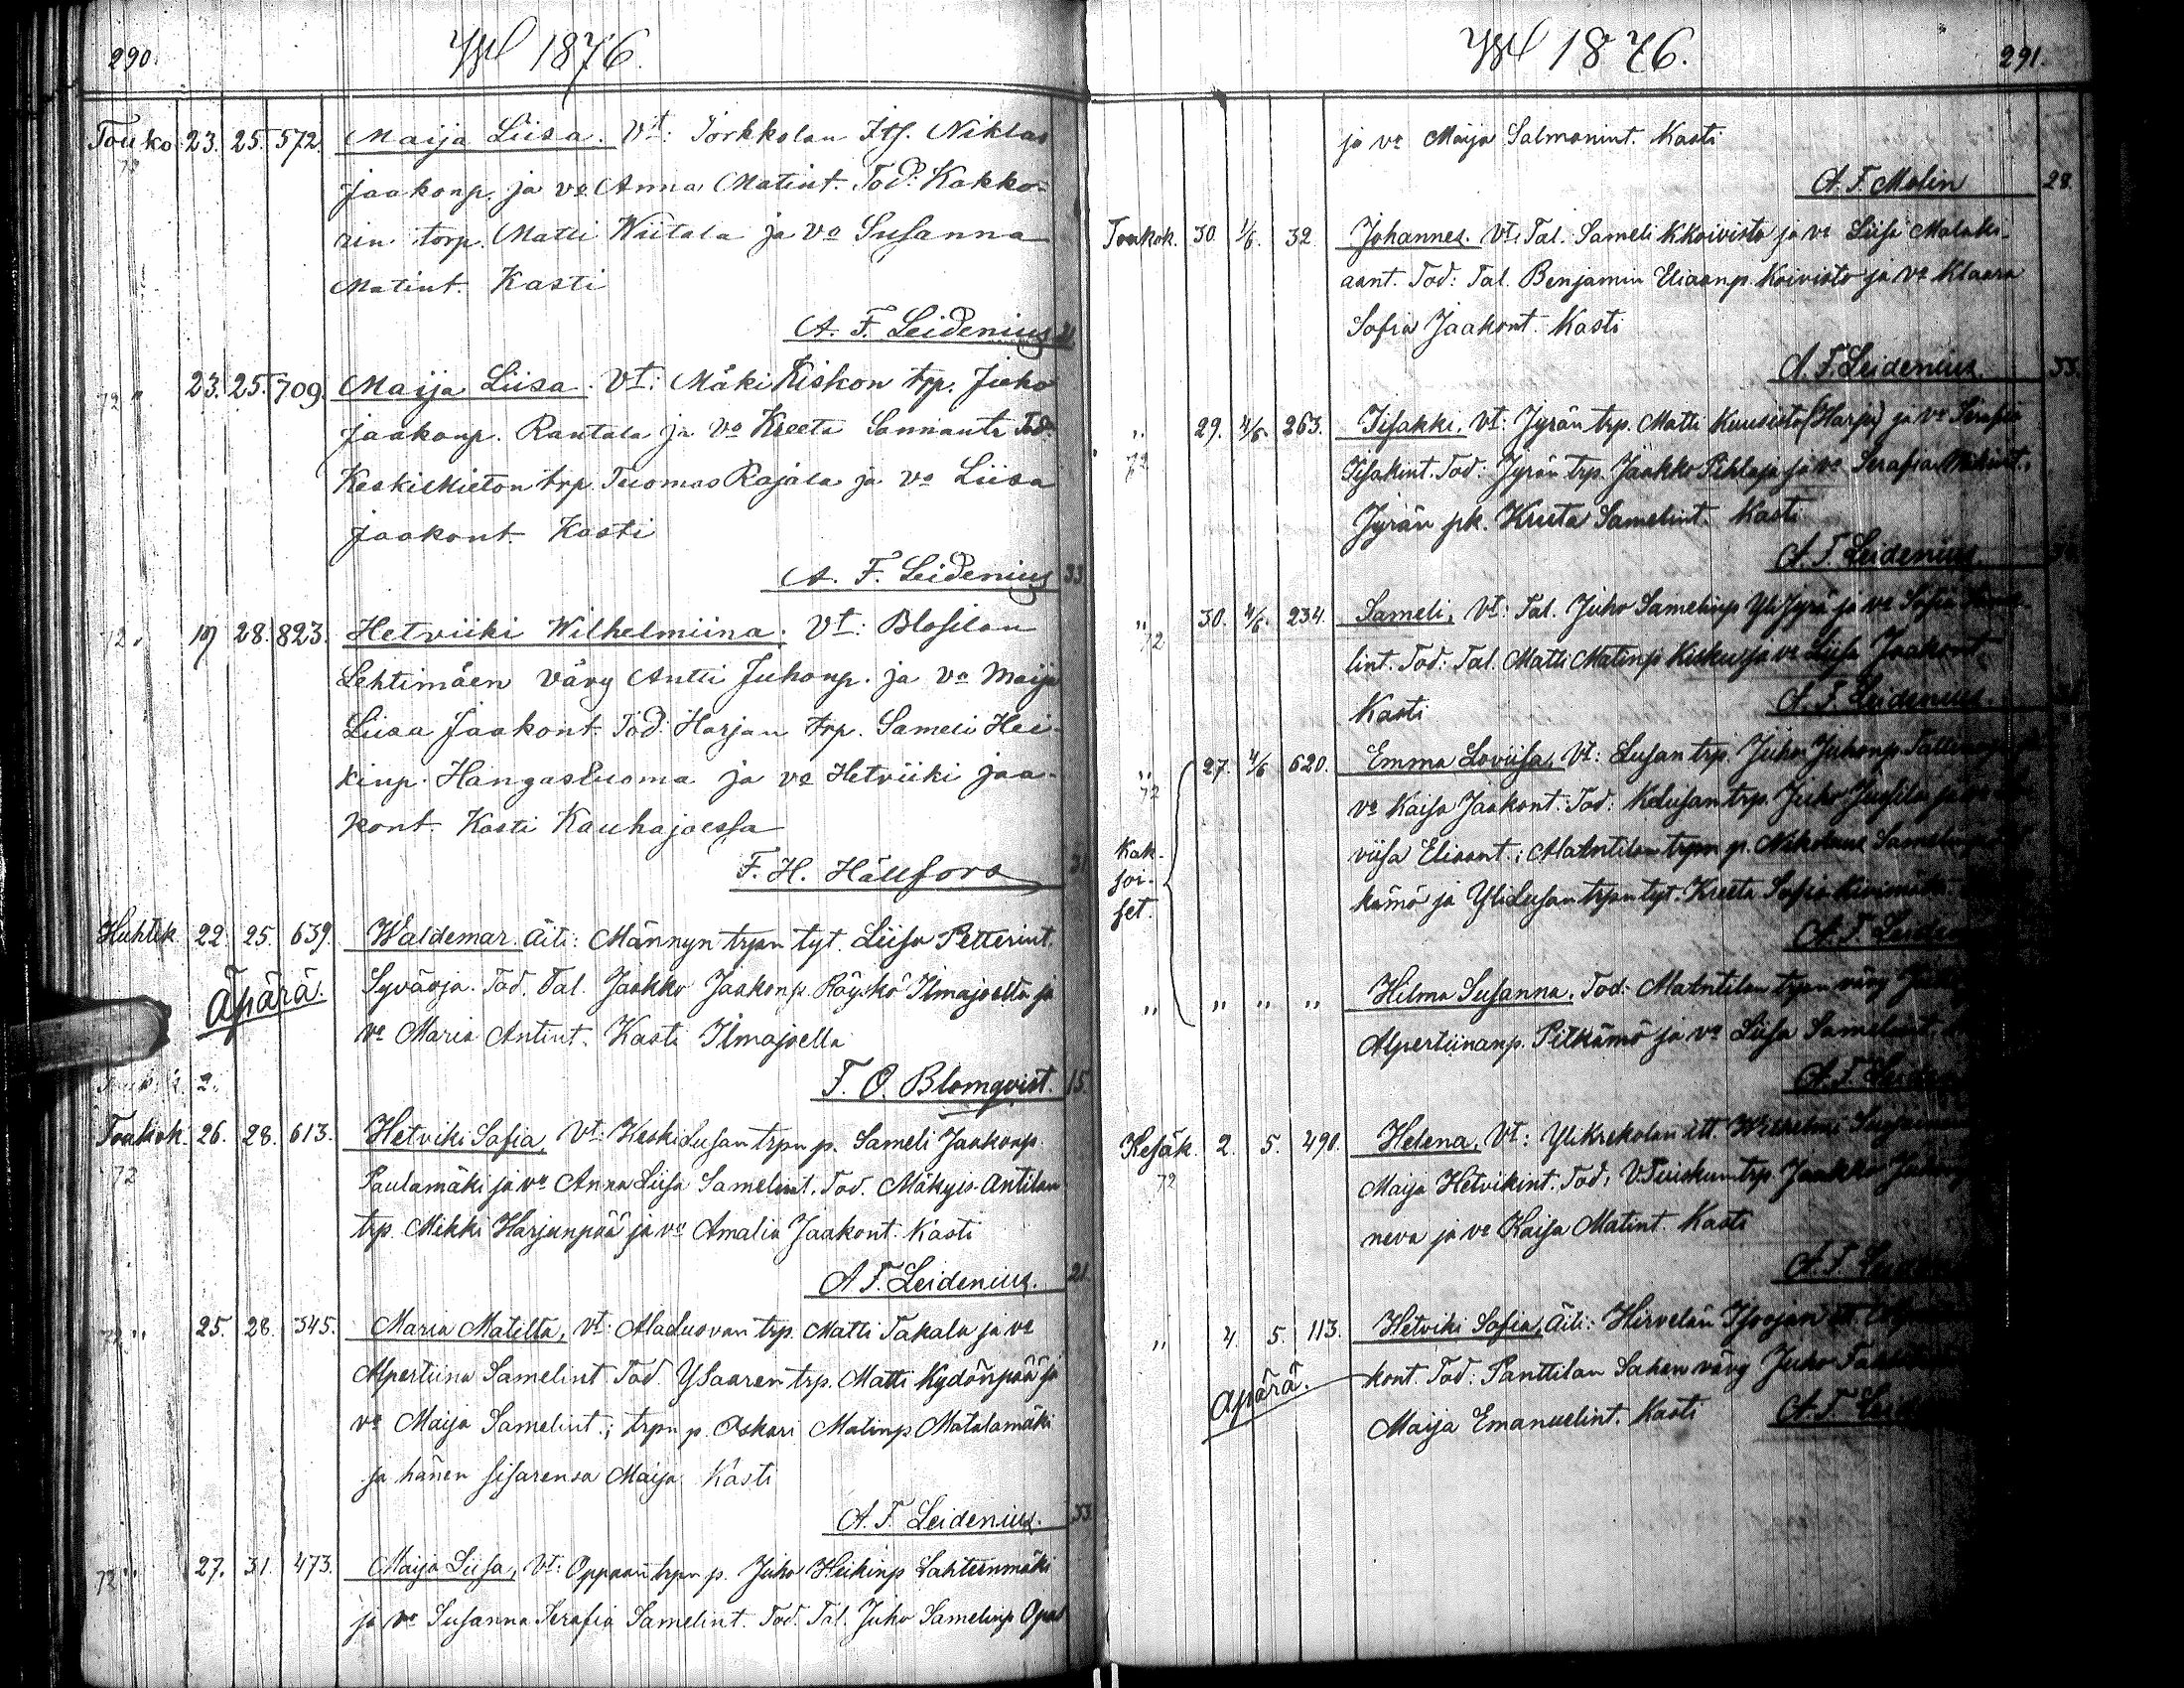 290.
Wl 1876.
Touko 23. 25. 572. Maija Liisa. Vt: Törkkolan Its. Niklas
72
Jaakonp. ja vo Anna Matint. Tod: Kakko-
rin torp. Matti Wiitala ja vo Susanna
Matint. Kasti
A. F. Leidenius 21
72 " 23. 25. 709. Maija Liisa. Vt: Mäki Kiskon trp. Juho
Jaakonp. Rantala ja vo Kreeta Sannantr Tod:
Keskikieton trp. Tuomas Rajala ja vo Liisa
Jaakont. Kasti
A. F. Leidenius 33.
72 " 19 28. 823. Hetviiki Wilhelmiina. Vt: Blosilan
Lehtimäen vävy Antti Juhonp. ja vo Maija
Liisa Jaakont. Tod: Harjan trp. Sameli Hei-
kinp. Hangasluoma ja vo Hetviiki Jaa-
kont. Kasti Kauhajoessa
F. H. Hällfors 31.
Huhtik 22. 25. 639. Waldemar. Äiti: Männyn trpn tyt. Liisa Petterint.
Äpärä. Syväoja. Tod. Tal. Jaakko Jaakonp. Röyskö Ilmajoelta ja
vo Maria Antint. Kasti Ilmajoella
F. O. Blomqvist. 15.
Toukok. 26. 28. 613. Hetviki Sofia, Vt: KeskiLusan trpn p. Sameli Jaakonp.
72
Paulamäki ja vo Anna Liisa Samelint. Tod. Mäkyis-Antilan
trp. Mikki Harjunpää ja vo Amalia Jaakont. Kasti
A F. Leidenius. 21.
72 " 25. 28. 345. Maria Matilta, Vt: AlaLuovan trp. Matti Takala ja vo
Alpertiina Samelint. Tod. YSaaren trp. Matti Kydönpää ja
vo Maija Samelint.; trpn p. Oskari Matinp Matalamäki
ja hänen sisarensa Maija. Kasti
A. F. Leidenius. 33.
72 " 27. 31. 473. Maija Liisa, Vt: Oppaan trpn p. Juho Heikinp Lahteenmäki
ja vo Susanna Serafia Samelint. Tod. Tal. Juho Samelinp Opas
Wl 1876.
291.
ja vo Maija Salmonint. Kasti
A. F. Molin 28.
Toukok. 30. 1/6. 32. Johannes. Vt: Tal. Sameli KKoivisto ja vo Liisa Malaki-
aant. Tod: Tal. Benjamin Eliaanp. Koivisto ja vo Klaara
Sofia Jaakont. Kasti
A. F. Leidenius. 33.
" 29. 4/6. 263. Iisakki. Vt: Jyrän trp. Matti Kuusisto (Harju) ja vo Serafia
72
Iisakint. Tod: Jyrän trp. Jaakko Pihlaja ja vo Serafia
Jyrän pk. Kreeta Samelint. Kasti
A. F. Leidenius.
" 30. 4/6. 234. Sameli, Vt: Tal. Juho Samelinp YliJyrä ja vo Sofia
72
lint. Tod: Tal. Matti Matinp Kisku ja vo Liisa Jaakont.
Kasti
A. F. Leidenius.
" 27. 4/6 620. Emma Loviisa, Vt: Lusan trp. Juho Juhonp.
72
vo Kaisa Jaakont. Tod: KeLusan trp. Juho Jussila ja
Kak- viisa Eliaant.; Mäntilan trpn p. Nikolaus
soi-
set. kämö ja YliLusan trpn tyt. Kreeta Sofia Kivimäki.
A. F. Leiden
" " " " Hilma Susanna. Tod: Mäntilan trpn vävy
Alpertiinanp. Pitkämö ja vo Liisa Samelint.
A. F. Leiden
Kesäk. 2. 5. 490. Helena, Vt: YliKrekolan itt.
72
Maija Hetvikint. Tod: trp. Jaakko
neva ja vo Kaisa Matint. Kasti
A. F.
" 4. 5. 113. Hetviki Sofia, Äiti: Hirvelän
Äpärä. kont. Tod: Panttilan Sahan vävy Juho
Maija Emanuelint. Kasti A. F. Leid